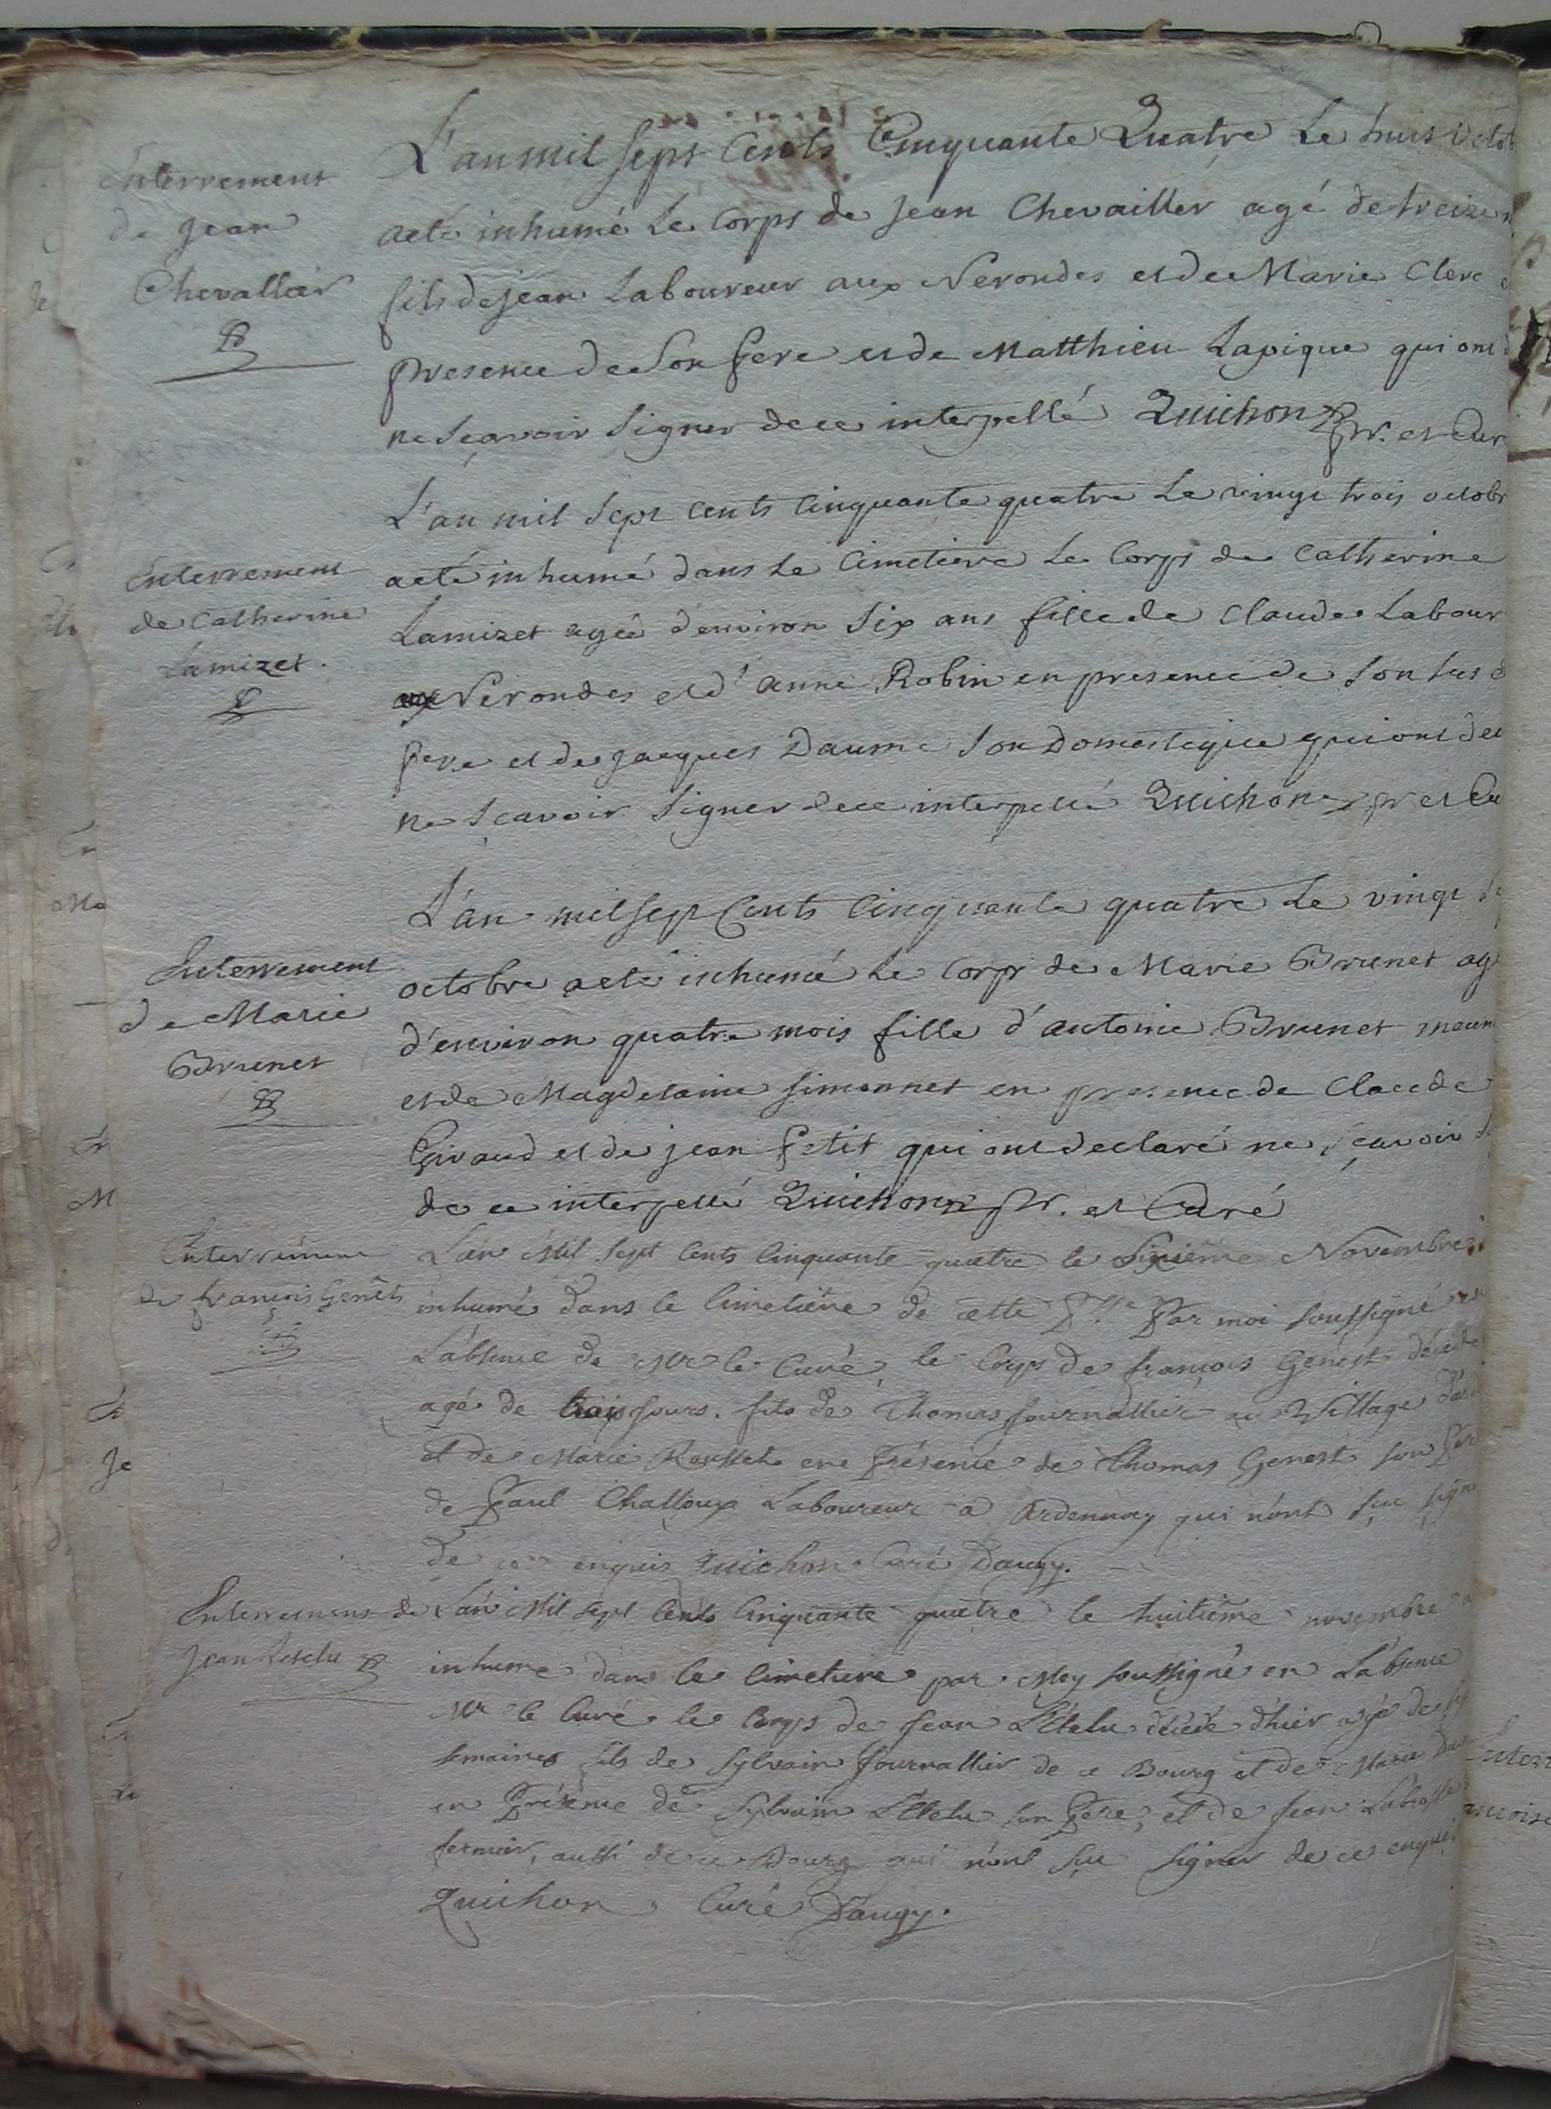 Enterrement
de jean
Chevallier
L'an mil sept Cents Cinquante Quatre Le huit octob
a eté inhumé Le Corps de jean Chevailler agé de treize
fils de jean Laboureur aux Nerondes et de Marie Clerc
presence de Son pere et de Matthieu Lapique qui ont
ne Sçavoir Signer de ce interpellé Quichon pr. et Cur
Enterrement
de Catherine
Lamizet.
L'an mil Sept Cents Cinquante quatre Le vingt trois octobr
a eté inhumé dans Le Cimetiere Le Corps de Catherine
Lamizet agée d'environ Six ans fille de Claude Labour
aux Nerondes et d'anne Robin en presence de Son Sus
pere et de jacques Daume Son Domestique qui ont dec
ne Scavoir Signer de ce interpellé Quichon pr et Cu
Enterrement
de Marie
Brunet
L'an mil Sept Cents Cinquante quatre Le vingt
octobre a eté inhumé Le Corps de Marie Brunet ag
d'environ quatre mois fille d'antoine Brunet meun
et de Magdelaine Simonnet en presence de Claude
Giraud et de jean petit qui ont declaré ne sçavoir
de ce interpellé Quichon pr. et Curé
Enterrement
de françois Genêts
L'an Mil Sept Cents Cinquante quatre le Sixième Novembre
inhumé dans le Cimetière de cette Psse Par moi soussigné
L'absence de Mr le Curé, le Corps de françois Genest décédé
agé de trois jours. fils de Thomas journallier au Village
et de Marie Rousset en Présence de Thomas Genest son per
de Paul Challoux Laboureur a Ardennay qui n'ont sçu sign
de ce enquis Quichon Curé Daugy.
Enterrement de
Jean Letelu
L'an Mil Sept Cents Cinquante quatre le huitième novembre a
inhumé dans le Cimetiere par Moy soussigné en L'absence
Mr le Curé le Corps de Jean L'Etelu décédé d'hier agé de
semaines fils de Sylvain Journallier de ce Bourg et de Marie
en Présence de Sylvain L'Etelu son Pere, et de Jean Labrosse
fermier, aussi de ce Bourg qui n'ont sçu signer de ce enquis
Quichon, Curé D'augy.